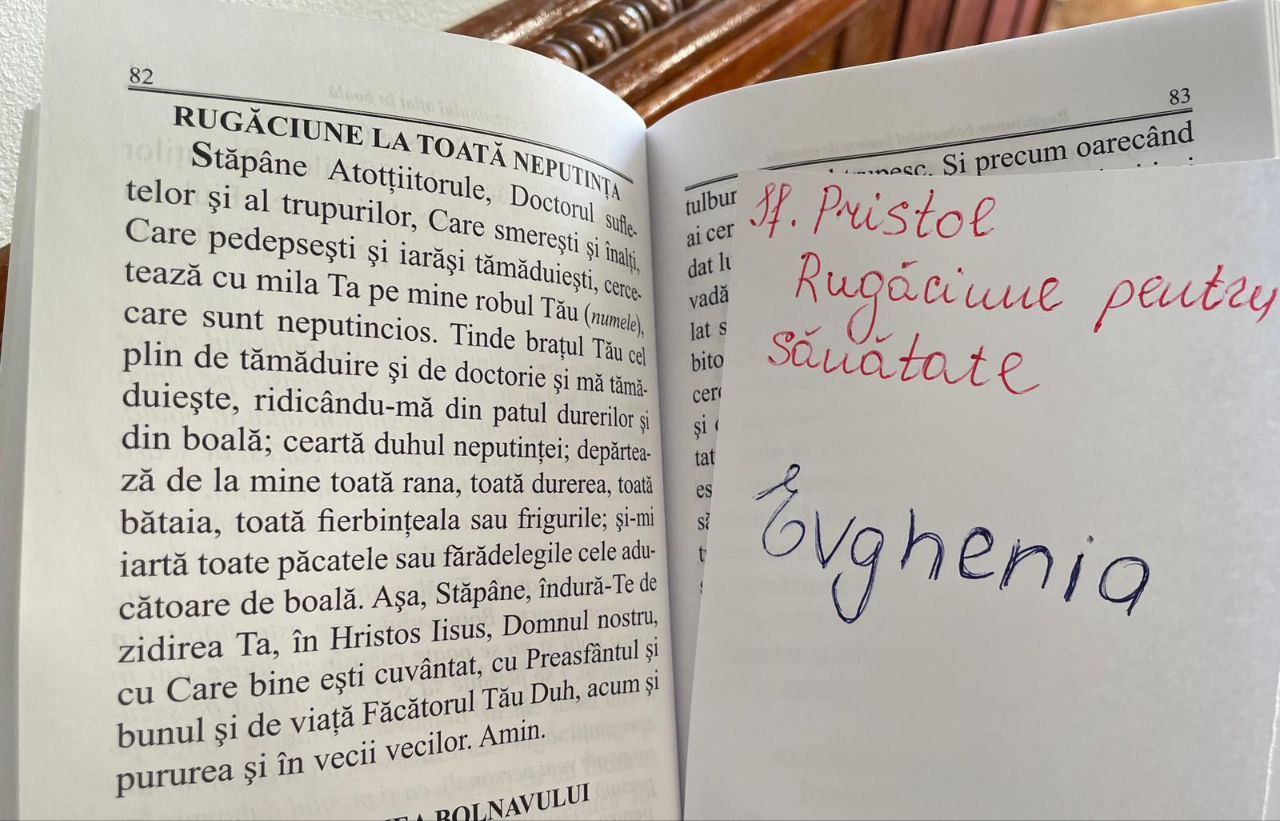 82
RUGĂCIUNE LA TOATĂ NEPUTINȚA
Stăpâne Atotțiitorule, Doctorul sufle-
telor şi al trupurilor, Care smereşti şi înalți,
Care pedepseşti şi iarăşi tămăduieşti, cerce-
tează cu mila Ta pe mine robul Tău (numele),
care sunt neputincios. Tinde brațul Tău cel
plin de tămăduire şi de doctorie şi mă tămă-
duieşte, ridicându-mă din patul durerilor şi
din boală; ceartă duhul neputinței; depărtea-
ză de la mine toată rana, toată durerea, toată
bătaia, toată fierbințeala sau frigurile; şi-mi
iartă toate păcatele sau fărădelegile cele adu-
cătoare de boală. Aşa, Stăpâne, îndură-Te de
zidirea Ta, în Hristos Iisus, Domnul nostru,
cu Care bine eşti cuvântat, cu Preasfântul şi
bunul şi de viață Făcătorul Tău Duh, acum şi
pururea şi în vecii vecilor. Amin.
BOLNAVULUI
83
Şi precum oarecând
tulbur
ai cer
dat lu
vadă
lat s
bito
cerc
şi
tat
es
să
Sf. Pristol
Rugăciune pentru
Sănătate
Evghenia